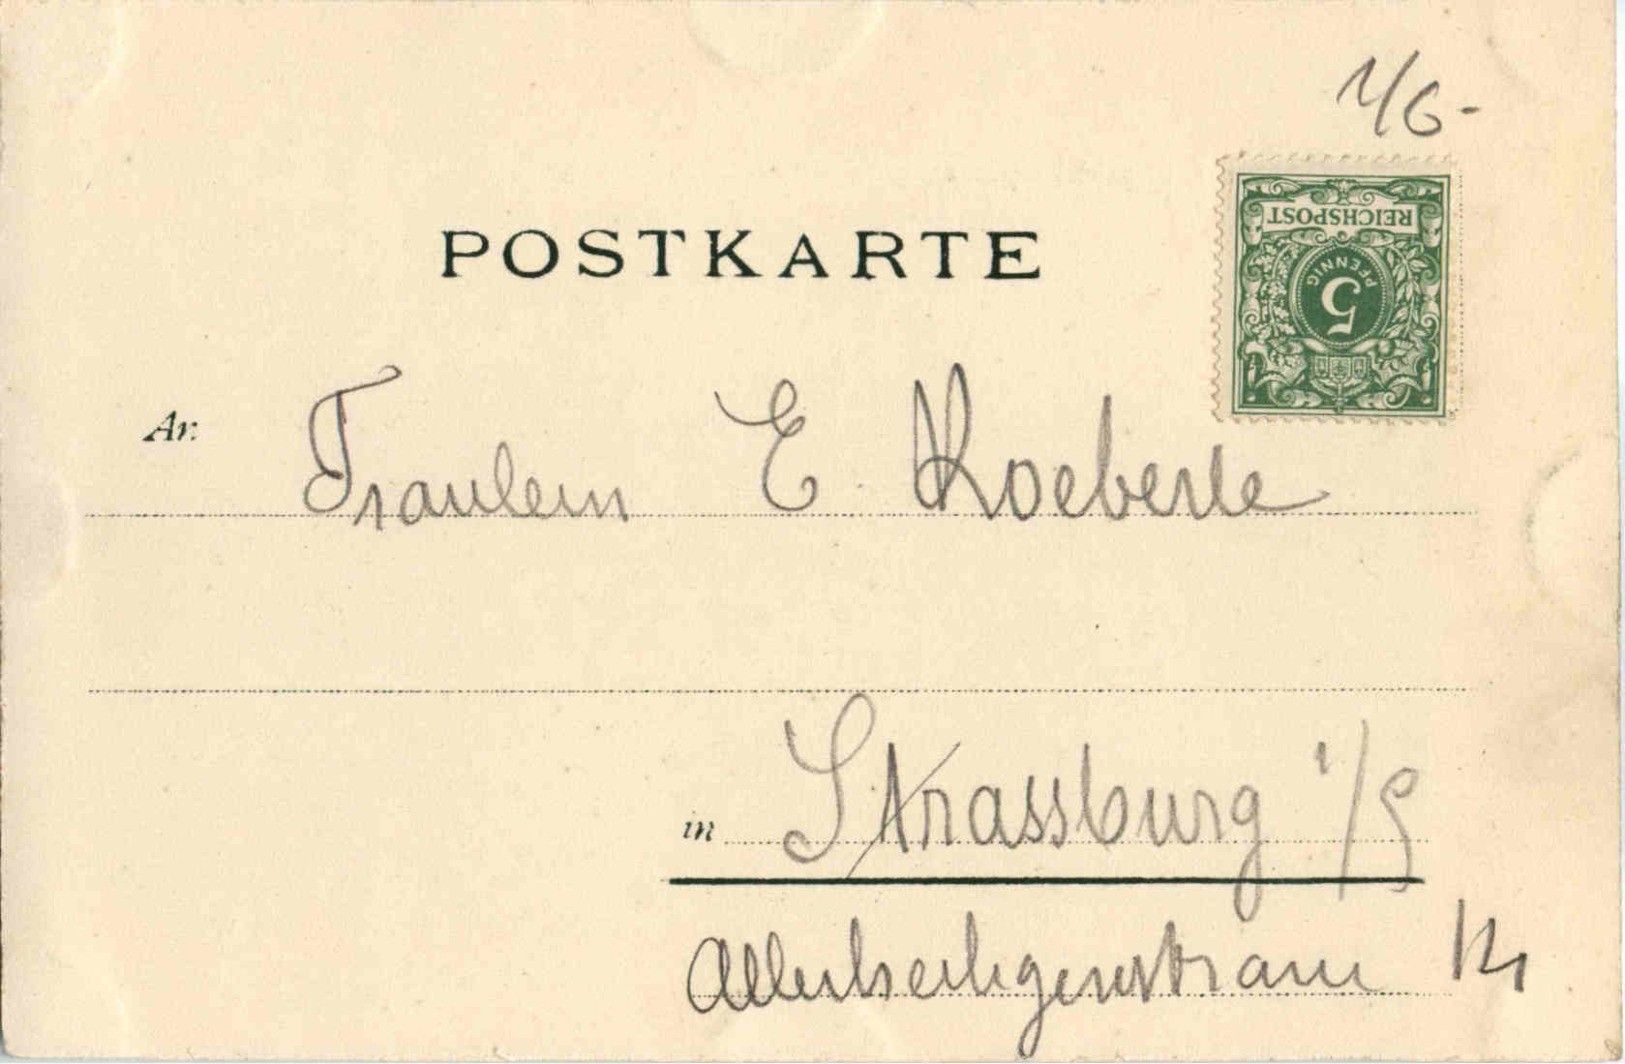 1/6-
POSTKARTE
REICHSPOST
5
PFENNIG
An
Fraulein E Koeberle
in Strassburg i/
Allerheiligenstrasse